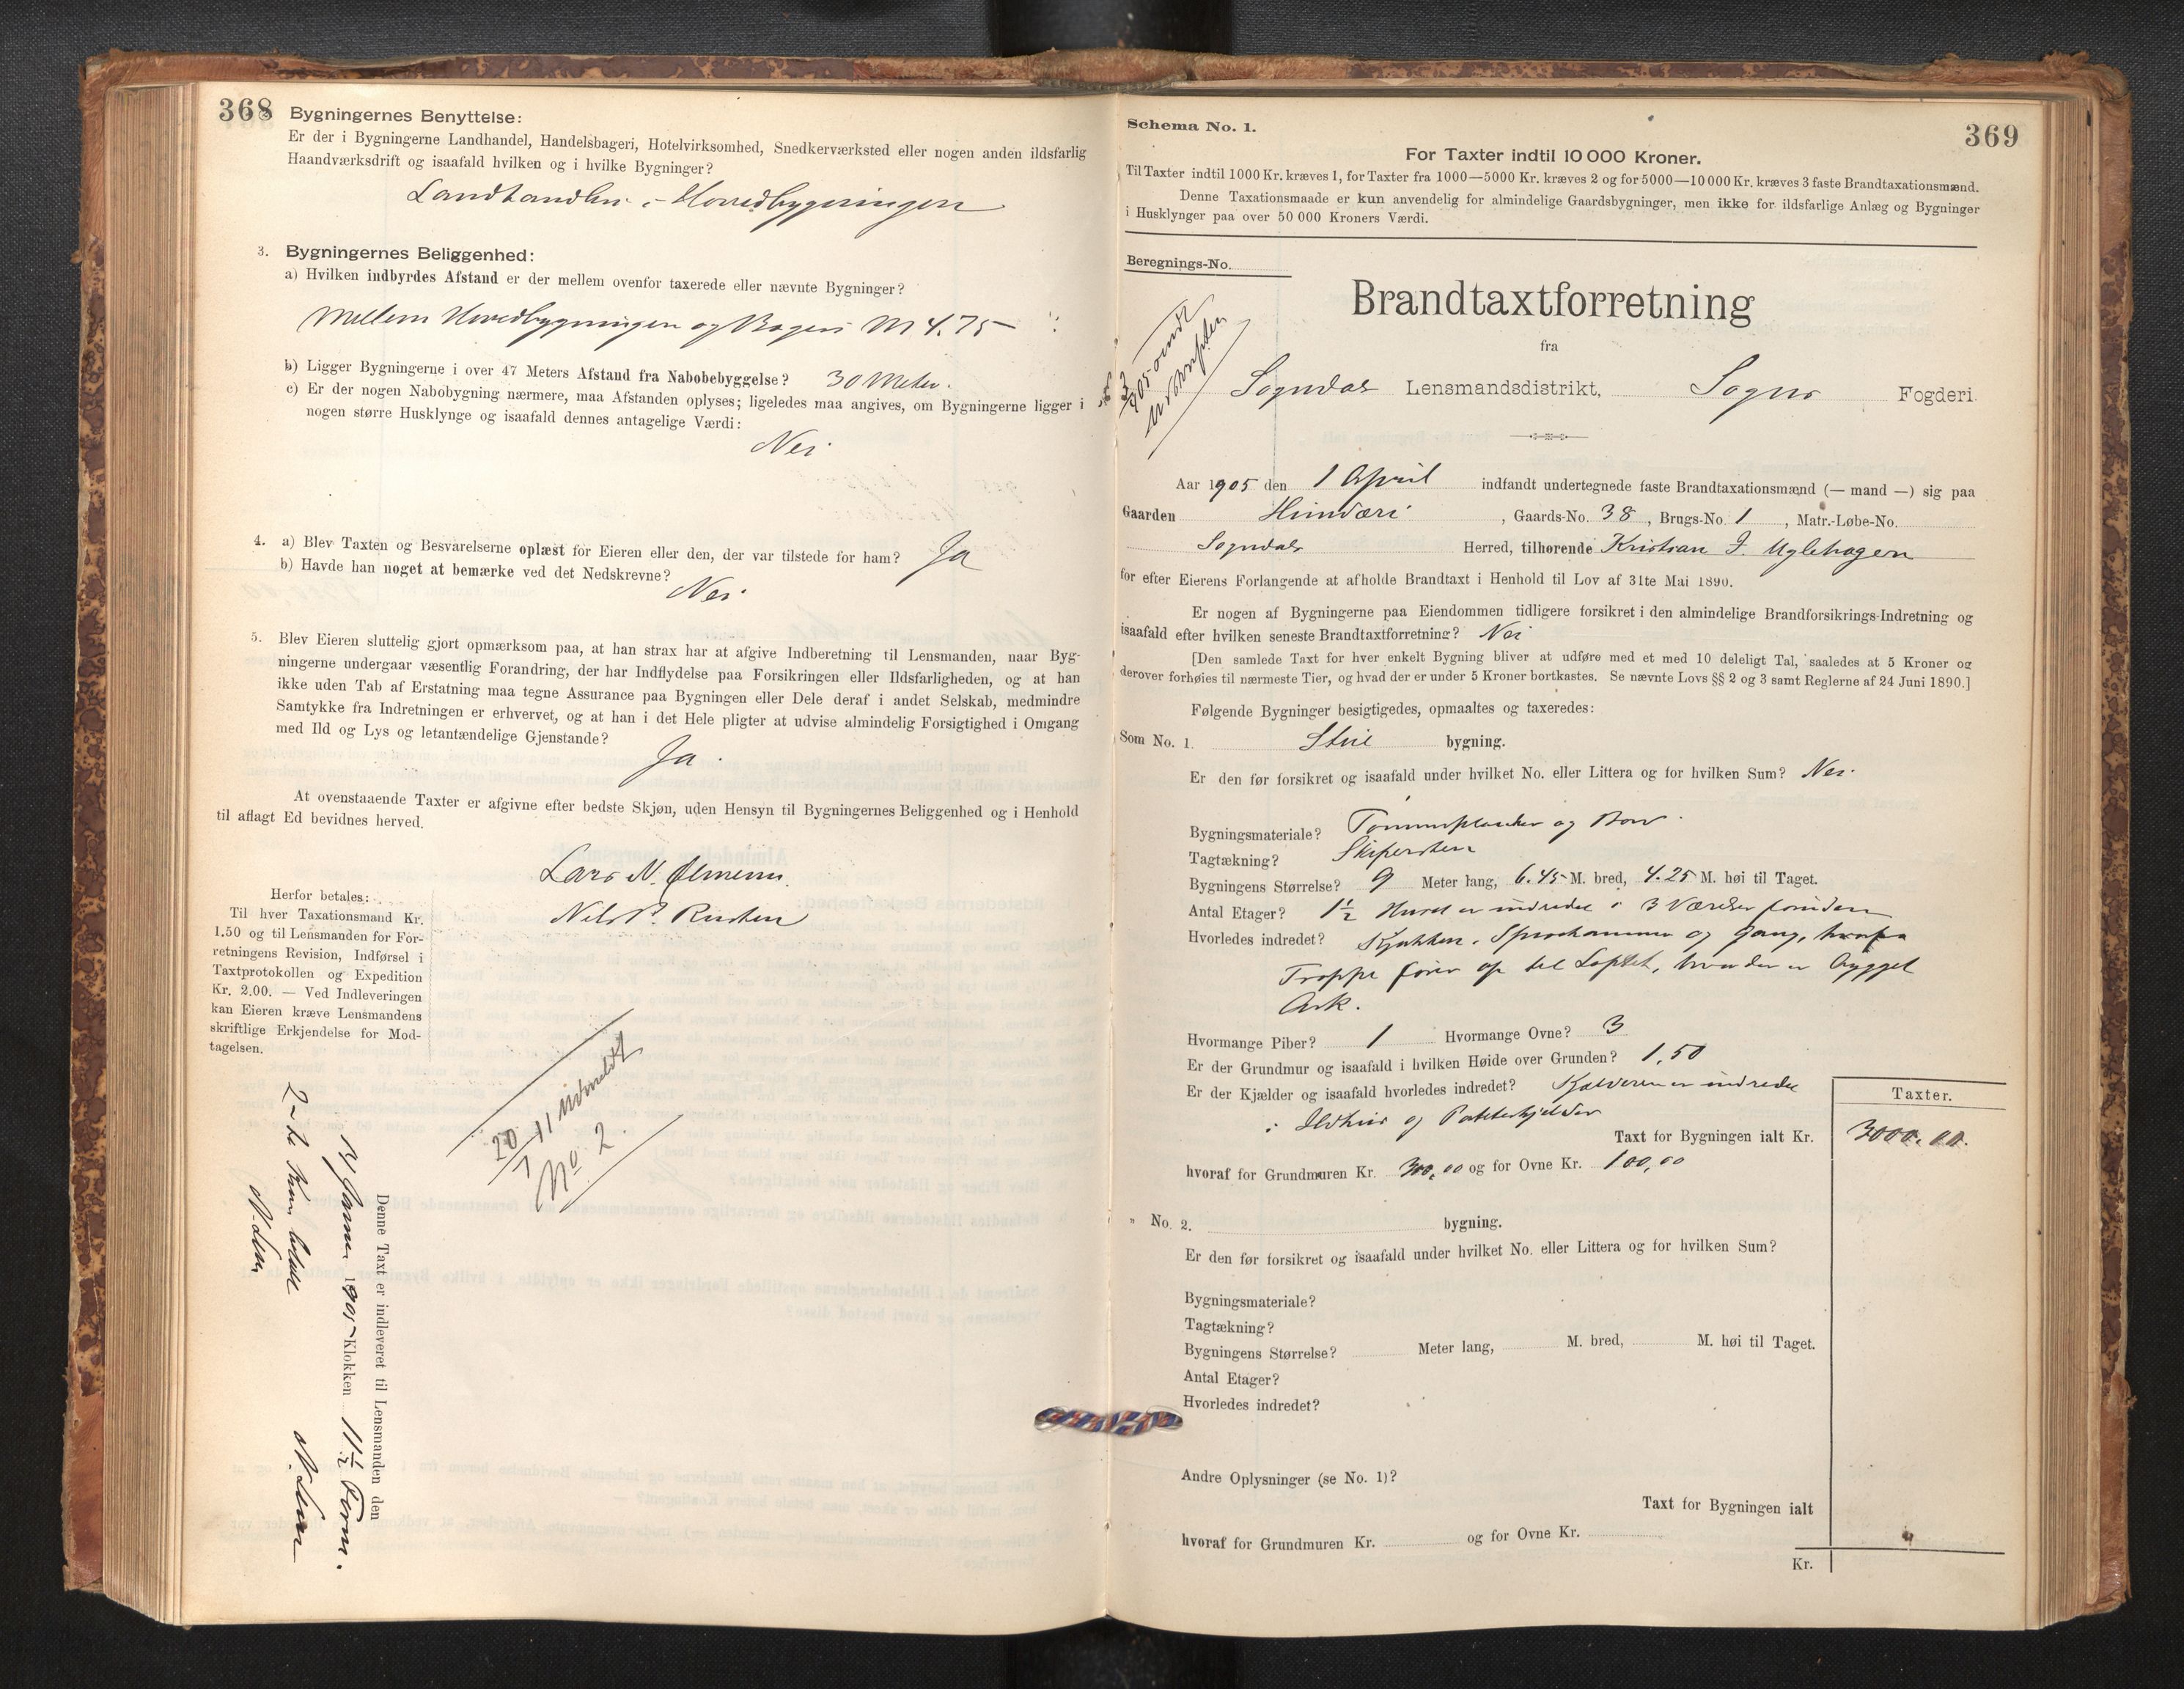 368
Bygningernes Benyttelse:
Er der i Bygningerne Landhandel, Handelsbageri, Hotelvirksomhed, Snedkerværksted eller nogen anden ildsfarlig
Haandværksdrift og isaafald hvilken og i hvilke Bygninger?
Landhandleri i Hovedbygningen
3. Bygningernes Beliggenhed:
a) Hvilken indbyrdes Afstand er der mellem ovenfor taxerede eller nævnte Bygninger?
Mellem Hovedbygningen og Bageri M 4.75
b) Ligger Bygningerne i over 47 Meters Afstand fra Nabobebyggelse? 30 Meter.
c) Er der nogen Nabobygning nærmere, maa Afstanden oplyses; ligeledes maa angives, om Bygningerne ligger i
nogen større Husklynge og isaafald dennes antagelige Værdi:
Nei
4. a) Blev Taxten og Besvarelserne oplæst for Eieren eller den, der var tilstede for ham? Ja
b) Havde han noget at bemærke ved det Nedskrevne?
Nei
5. Blev Eieren sluttelig gjort opmærksom paa, at han strax har at afgive Indberetning til Lensmanden, naar Byg-
ningerne undergaar væsentlig Forandring, der har Indflydelse paa Forsikringen eller Ildsfarligheden, og at han
ikke uden Tab af Erstatning maa tegne Assurance paa Bygningen eller Dele deraf i andet Selskab, medmindre
Samtykke fra Indretningen er erhvervet, og at han i det Hele pligter at udvise almindelig Forsigtighed i Omgang
med Ild og Lys og letantændelige Gjenstande?
Ja.
At ovenstaaende Taxter er afgivne efter bedste Skjøn, uden Hensyn til Bygningernes Beliggenhed og i Henhold
til aflagt Ed bevidnes herved.
Lars N.
Nils P.
Herfor betales:
Til hver Taxationsmand Kr.
1.50 og til Lensmanden for For-
retningens Revision, Indførsel i
Taxtprotokollen og Expedition
Kr. 2.00. — Ved Indleveringen
kan Eieren kræve Lensmandens
skriftlige Erkjendelse for Mod-
tagelsen.
20/7 11
No 2.
Denne Taxt er indleveret til Lensmanden den
1905 Klokken 11½ Form.
2 - to Kroner betalt
369
Schema No. 1.
For Taxter indtil 10 000 Kroner.
Til Taxter indtil 1000 Kr. kræves 1, for Taxter fra 1000—5000 Kr. kræves 2 og for 5000—10 000 Kr. kræves 3 faste Brandtaxationsmænd.
Denne Taxationsmaade er kun anvendelig for almindelige Gaardsbygninger, men ikke for ildsfarlige Anlæg og Bygninger
i Husklynger paa over 50 000 Kroners Værdi.
Beregnings-No.
Brandtaxtforretning
fra
Sogndal Lensmandsdistrikt, Sogns Fogderi.
Aar 1905 den 1 April indfandt undertegnede faste Brandtaxationsmænd (— mand —) sig paa
Gaarden , Gaards-No. 38, Brugs-No. 1, Matr.-Løbe-No.
Sogndals Herred, tilhørende Kristian J. Uglehagen
for efter Eierens Forlangende at afholde Brandtaxt i Henhold til Lov af 31te Mai 1890.
Er nogen af Bygningerne paa Eiendommen tidligere forsikret i den almindelige Brandforsikrings-Indretning og
isaafald efter hvilken seneste Brandtaxtforretning? Nei
[Den samlede Taxt for hver enkelt Bygning bliver at udføre med et med 10 deleligt Tal, saaledes at 5 Kroner og
derover forhøies til nærmeste Tier, og hvad der er under 5 Kroner bortkastes. Se nævnte Lovs §§ 2 og 3 samt Reglerne af 24 Juni 1890.]
Følgende Bygninger besigtigedes, opmaaltes og taxeredes:
Som No. 1. bygning.
Er den før forsikret og isaafald under hvilket No. eller Littera og for hvilken Sum? Nei.
Bygningsmateriale? Tømmerplanker og Bord.
Tagtækning? Skifersten
Bygningens Størrelse? 9 Meter lang, 6.45 M. bred, 4.25 M. høi til Taget.
Antal Etager? 1½ Huset er indredet i 3 Værelser foruden
Hvorledes indredet? Kjøkken, og Gang, hvorfra
Trappe fører op til Loftet, hvor der er bygget
Ark.
Hvormange Piber? 1 Hvormange Ovne? 3
Er der Grundmur og isaafald i hvilken Høide over Grunden? 1,50
Er der Kjælder og isaafald hvorledes indredet? Kjælderen er indredet
i Ildhus og
Taxter.
Taxt for Bygningen ialt Kr. 3000.00.
hvoraf for Grundmuren Kr. 300,00 og for Ovne Kr. 100,00
" No. 2. bygning.
Er den før forsikret og isaafald under hvilket No. eller Littera og for hvilken Sum?
Bygningsmateriale?
Tagtækning?
Bygningens Størrelse? Meter lang, M. bred, M. høi til Taget.
Antal Etager?
Hvorledes indredet?
Andre Oplysninger (se No. 1)?
Taxt for Bygningen ialt
hvoraf for Grundmuren Kr. og for Ovne Kr.
Kr.